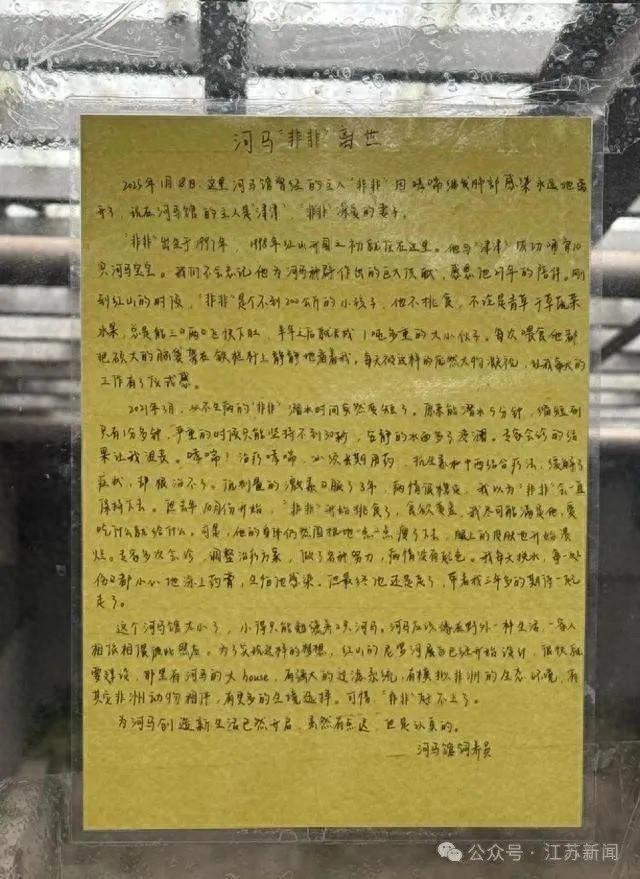 河马"非非"离世
2025年1月18日,这里河马馆曾经的主人"非非"因哮喘继发肺部感染永远地离
开了,现在河马馆的主人是"津津","非非"深爱的妻子。
"非非"出生于1997年,1998年红山开园之初就住在这里。他与"津津"成功哺育10
只河马宝宝。我们不会忘记他为河马种群作出的巨大贡献,感恩他27年的陪伴。刚
到红山的时候,"非非"是个不到200公斤的小孩子,他不挑食,不论是青草干草蔬菜
水果,总是能三口两口飞快下肚,半年之后就长成1吨多重的大小伙子。每次喂食他都
把硕大的脑袋靠在铁栏杆上静静地看着我。每天被这样的庞然大物凝视,让我每天的
工作有了仪式感。
2021年3月,从不生病的"非非"潜水时间突然变短了。原来能潜水5分钟,缩短到
只有1分多钟,严重的时候只能坚持不到30秒,安静的水面多了波澜。专家会诊的结
果让我沮丧。哮喘!治疗哮喘,必须长期用药,抗生素和中西结合疗法,缓解了
症状,却根治不了。低剂量的激素口服了3年,病情很稳定,我以为"非非"会一直
保持下去。但去年10月份开始,"非非"开始挑食了,食欲变差,我尽可能满足他,要
吃什么就给什么。可是,他的身体仍然固执地一点一点瘦了下去,腿上的皮肤也开始溃
烂。专家多次会诊,调整治疗方案,做了各种努力,病情没有起色。我每天换水,每一处
伤口都小心地涂上药膏,生怕他感染。但最终他还是走了,带着我三年多的期待一起
走了。
这个河马馆太小了,小得只能勉强养2只河马。河马应该像在野外一种生活,一家人
相依相偎彼此照应。为了实现这样的梦想,红山的尼罗河展区已经开始设计,很快就
要建设,那里有河马的大house,有强大的过滤系统,有模拟非洲的生态环境,有
其它非洲动物相伴,有更多的生境选择。可惜,"非非"赶不上了。
为河马创造新生活已然开启,虽然有点迟,但是认真的。
——河马馆饲养员
公众号·江苏新闻